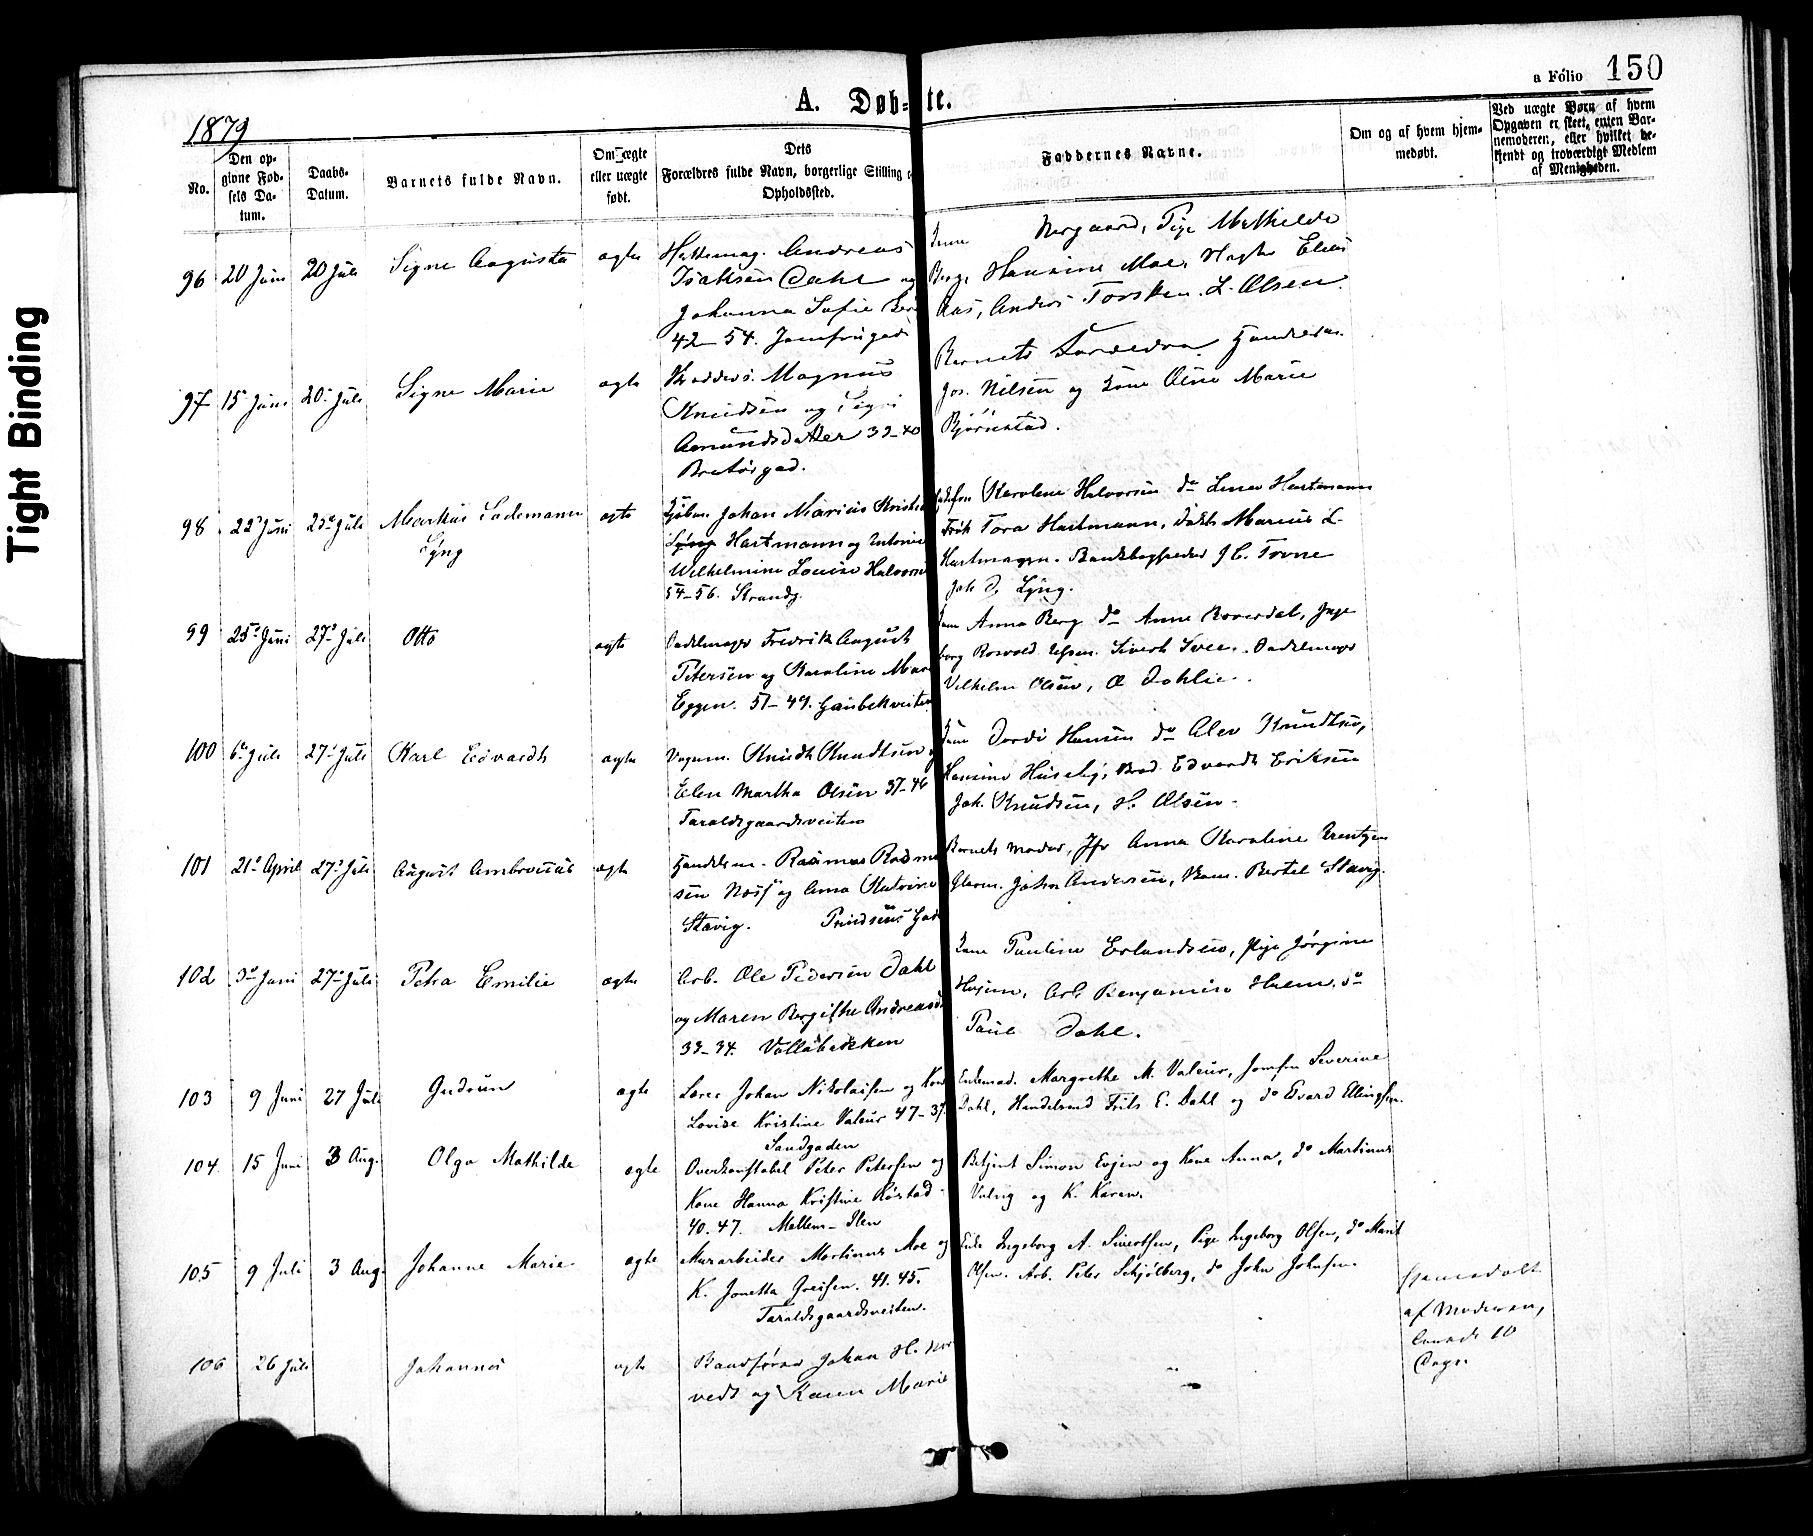 Tight Binding
a Folio 150
A. Døbte.
1879
No.
Den opgivne Fødsels Datum.
Daabs-Datum.
Barnets fulde Navn.
Om ægte eller uægte født.
Dets Forældres fulde Navn, borgerlige Stilling
Opholdssted.
Faddernes Navne.
Om og af hvem hjemmedøbt.
Ved uægte Børn af hvem Opgaven er skeet, enten Barnemoderen, eller hvilket bekjendt og troværdigt Medlem af Menigheden.
96 20 Juni 20 Juli Signe Augusta ægte
Hattemag. Andreas
Isaksen Dahl og
Johanna Sofie
42–54. Jomfrugad
Nergaard, Pige Mathilde
Berg, Hansine Moe, Elias
Aas, Anders Torsken. L. Olsen.
97 15 Juni 20 Juli Signe Marie ægte
Magnus
Knudsen og
Amundsdatter 39–40
Bratørgad.
Barnets Forældre
Jos. Nilsen og Kone Oline Marie
Bjørnstad.
98 22 Juni 25 Juli Markus Lademann Lyng ægte
Kjøbm. Johan Marius
Lyng Hartmann og Antonie
Wilhelmine Louise Halvorsen
54–56. Strandg.
Karoline Halvorsen do Lina Hartmann
Frøk Tora Hartmann, Marius L.
Hartmann. Bankbogholder J C. Tovne
Joh D. Lyng.
99 25 Juni 27 Juli Otto ægte
Sadelmager Fredrik August
Petersen og Karoline
Eggen. 51–49. Gaubekveiten
Anna Berg do Anne Roverdal, Inge
borg Rosvold. Sivert Svee. Sadelmager
Vilhelm Olsen, O Dahlie.
100 6 Juli 27 Juli Karl Edvardt ægte
Vognm. Knudt Knudtsen
Elen Martha Olsen 37–46
Taraldsgaardsveiten
Dordi Hansen do Knudtsen,
Hansine Huseby, Edvardt Eriksen
Joh. Knudsen, H. Olsen.
101 21 April 27 Juli August Ambrosius ægte
Handelsm. Rasmus Rasmu
sen og Anna Katrine
Stavig. Prindsens Gad
Barnets Moder, Jfr Anna Karoline
John Andersen, Bertel Stavig.
102 3 Juni 27 Juli Petra Emilie ægte
Arb. Ole Pedersen Dahl
og Maren Bergithe Andreasd
33–34. Vollabakken
Pauline Erlandsen, Pige Jørgine
Arb Benjamin do
Paul Dahl.
103 9 Juni 27 Juli Gudrun ægte
Lærer Johan Nikolaisen og Kone
Lovise Kristine Valeur 47–37
Sandgaden
Enkemad. Margrethe M. Valeur, Jomfru Severine
Dahl, Handelsmd Frits E. Dahl og do Evard Ellingsen.
104. 15 Juni 3 Aug. Olga Mathilde ægte
Overkonstabel Peter Petersen og
Kone Hanna Kristine Røstad
40. 47. Mellem-Ilen
Betjent Simon Evjen og Kone Anna, do Martinus
og K. Karen.
105 9 Juli 3 Aug. Johanne Marie ægte
Murarbeider Martinus Moe og
K. Jonetta Greisen. 41. 45.
Taraldsgaardsveiten.
Enke Ingeborg A. Sivertsen, Pige Ingeborg Olsen, do Marit
Olsen. Arb. Peter Schjølberg, do John Johnsen.
Hjemmedøbt
af Moderen,
10
Dage.
106 26 Juli Johannes ægte
Baadfører Johan H.
vedt og Karen Marie